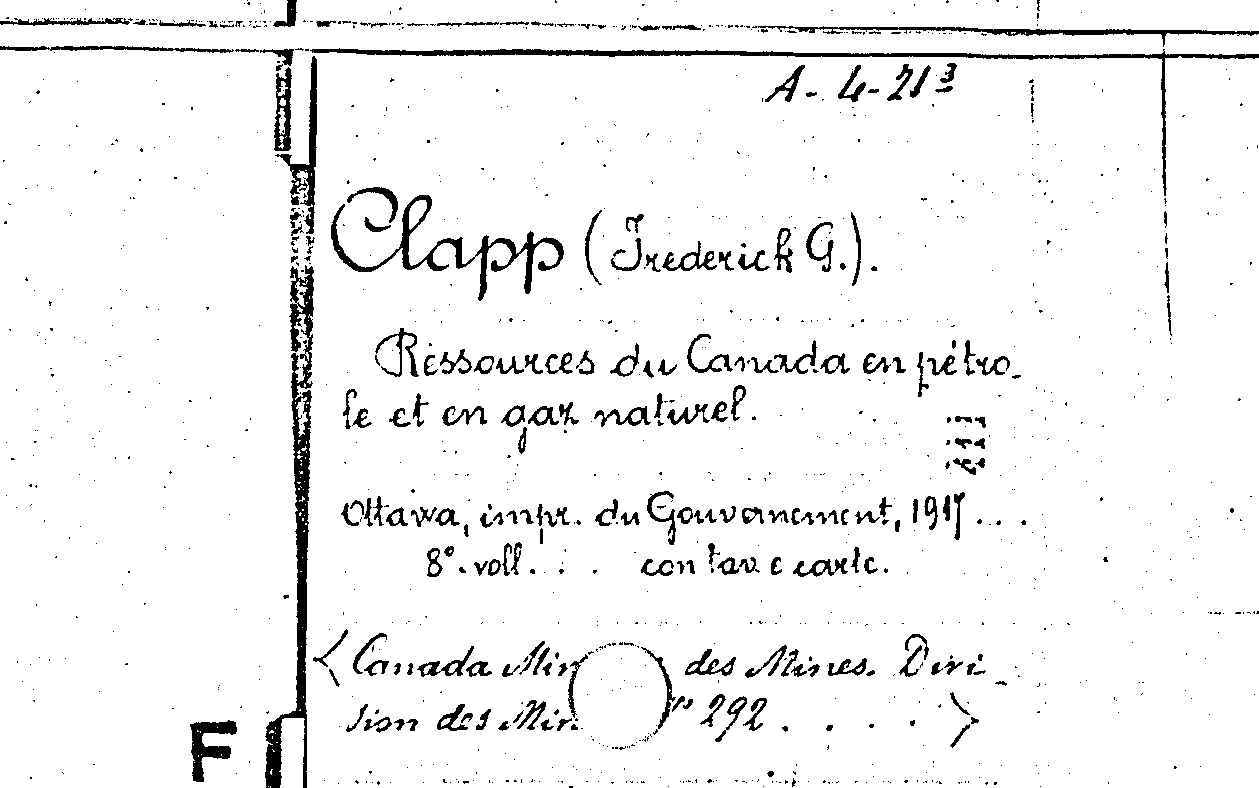 A-4-21³
Clapp (Frederick G.).
Ressources du Canada en pétro-
le et en gaz naturel.
Ottawa, impr. du Gouvernement, 1917...
8°. voll. . . con tav e carte.
<Canada des Mines. Divi-
sion des 292 . . . . >
F